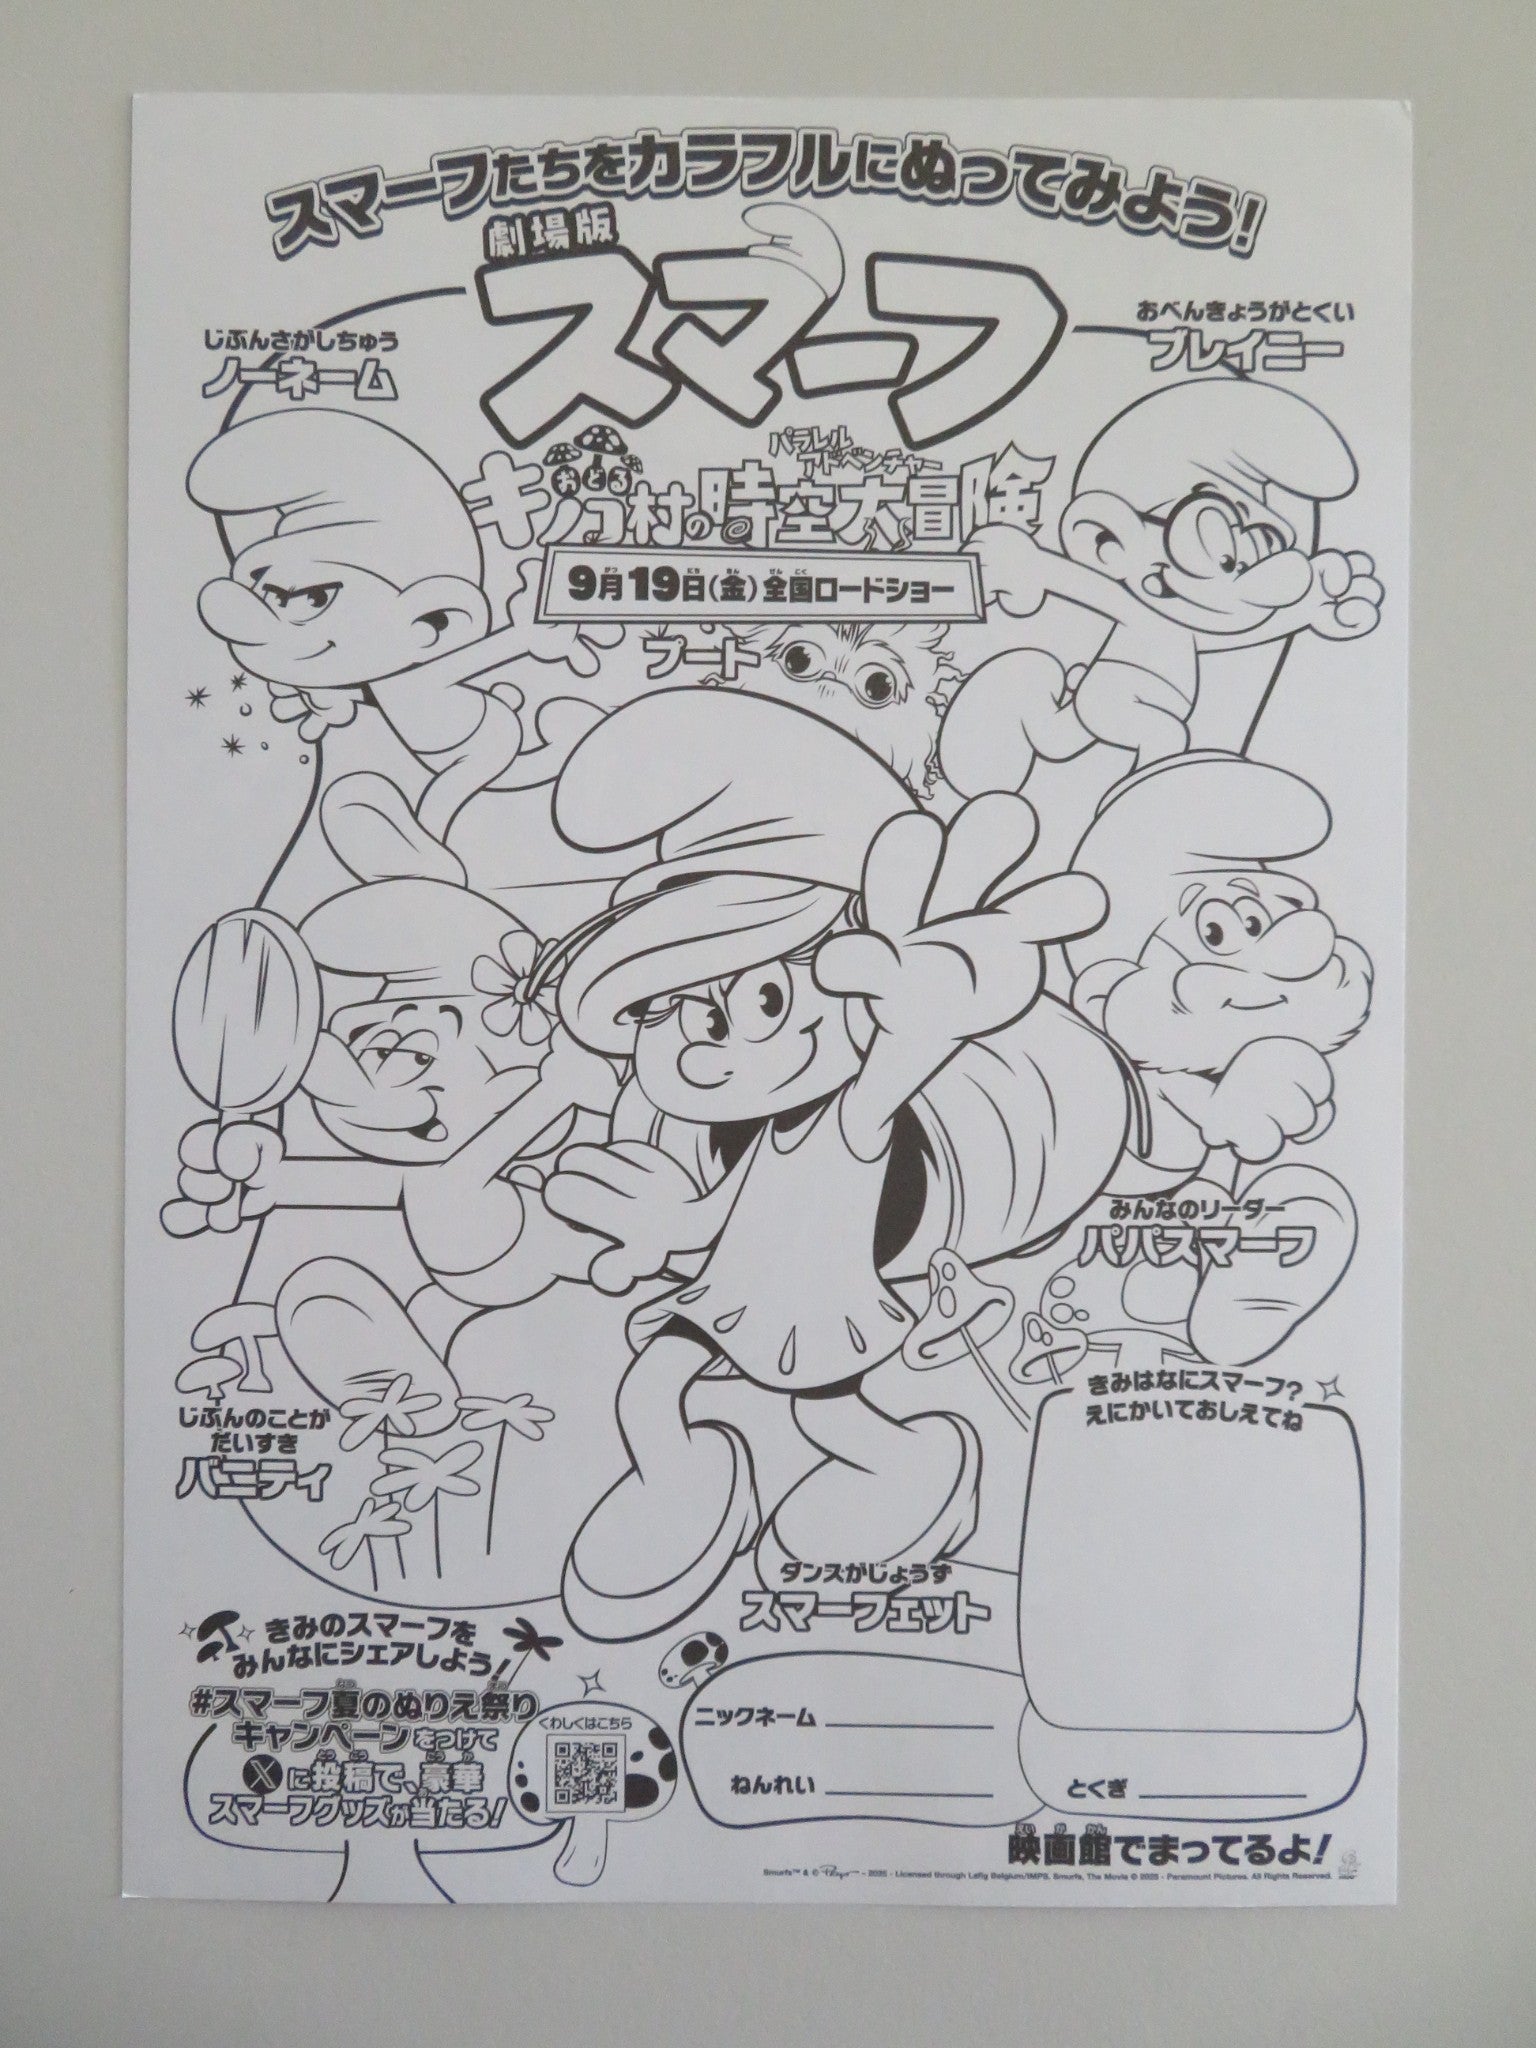 スマーフたちをカラフルにぬってみよう!
劇場版
スマーフ
おどろ
キノコ村の時空大冒険
パラレル
アドベンチャー
9月19日(金)全国ロードショー
がつ にち きん ぜん こく
じぶんさがしちゅう
ノーネーム
おべんきょうがとくい
ブレイニー
プート
みんなのリーダー
パパスマーフ
じぶんのことが
だいすき
バニティ
ダンスがじょうず
スマーフェット
きみはなにスマーフ?
えにかいておしえてね
きみのスマーフを
みんなにシェアしよう!
#スマーフ夏のぬりえ祭り
キャンペーンをつけて
Xに投稿で、豪華
スマーフグッズが当たる!
くわしくはこちら
ニックネーム
ねんれい
とくぎ
えい が かん
映画館でまってるよ!
Smurfs™ & © Peyo - 2025 - Licensed through Lafig Belgium/IMPS. Smurfs, The Movie © 2025 - Paramount Pictures. All Rights Reserved.